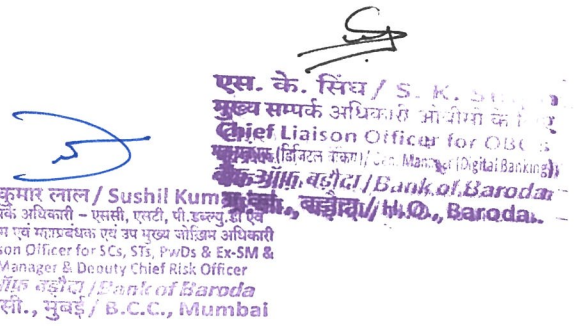 एस. के. सिंघ / S. K.
मुख्य सम्पर्क अधिकारी ओबीसी के
Chief Liaison Officer for OBC
(डिजिटल बैंकिंग) / Gen. Manager (Digital Banking)
बैंक ऑफ़ बड़ौदा / Bank of Baroda
बड़ौदा / H.O., Baroda.
कुमार लाल / Sushil Kum
र्क अधिकारी – एससी, एसटी, पी.डब्ल्यु.डी एवं
एवं महाप्रबंधक एवं उप मुख्य जोखिम अधिकारी
son Officer for SCs, STs, PwDs & Ex-SM &
Manager & Deputy Chief Risk Officer
ऑफ़ बड़ौदा / Bank of Baroda
सी., मुंबई / B.C.C., Mumbai